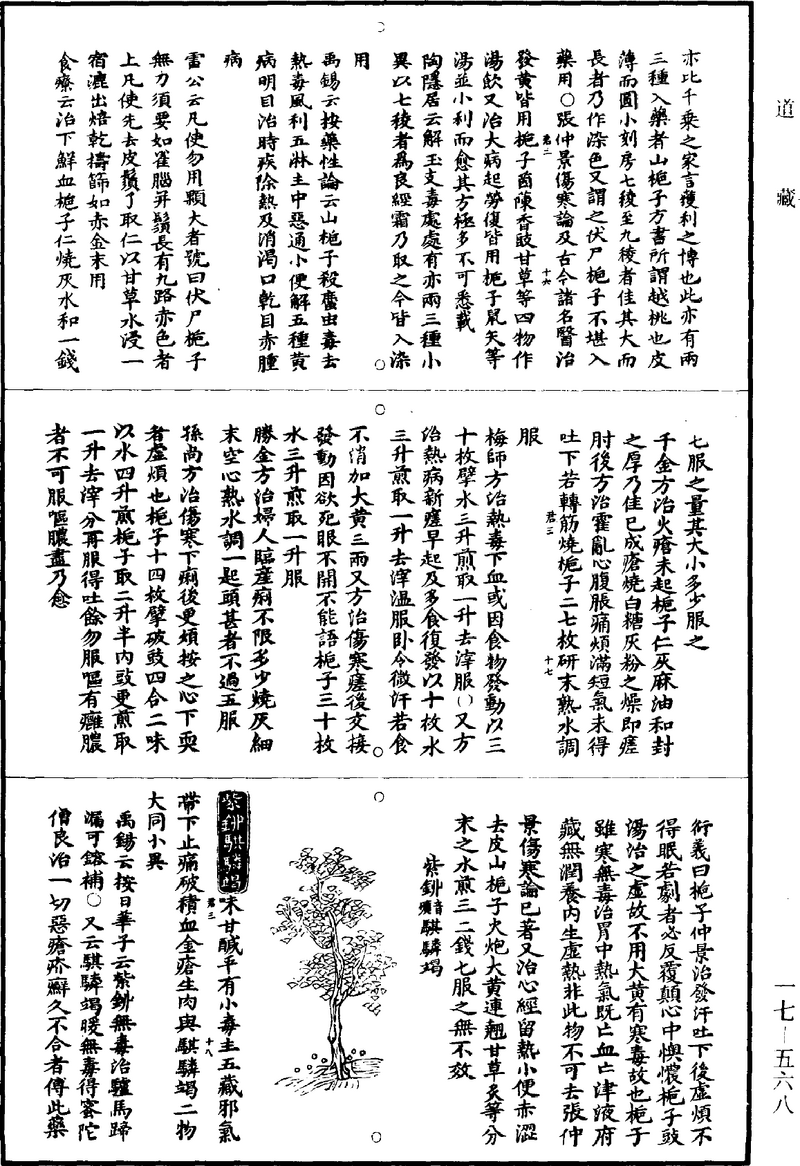 道藏
一七—五六八
亦比千乘之家言獲利之博也此亦有兩
三種入藥者山梔子方書所謂越桃也皮
薄而圓小刻房七稜至九稜者佳其大而
長者乃作染色又謂之伏尸梔子不堪入
藥用○張仲景傷寒論及古今諸名醫治
君二
十六
發黃皆用梔子茵蔯香豉甘草等四物作
湯飲又治大病起勞復皆用梔子鼠矢等
湯並小利而愈其方極多不可悉載
陶隱居云解玉支毒處處有亦兩三種小
異以七稜者爲良經霜乃取之今皆入染
用
禹錫云按藥性論云山梔子殺䗪虫毒去
熱毒風利五淋主中惡通小便解五種黃
病明目治時疾除熱及消渴口乾目赤腫
病
雷公云凡使勿用顆大者號曰伏尸梔子
無力須要如雀腦并鬚長有九路赤色者
上凡使先去皮鬚了取仁以甘草水浸一
宿漉出焙乾擣篩如赤金末用
食療云治下鮮血梔子仁燒灰水和一錢
七服之量其大小多少服之
千金方治火瘡未起梔子仁灰麻油和封
之厚乃佳已成瘡燒白糖灰粉之燥即瘥
肘後方治霍亂心腹脹痛煩滿短氣未得
吐下若轉筋燒梔子二七枚研末熟水調
君三
十七
服
梅師方治熱毒下血或因食物發動以三
十枚擘水三升煎取一升去滓服○又方
治熱病新瘥早起及多食復發以十枚水
三升煎取一升去滓温服卧令微汗若食
不消加大黃三兩又方治傷寒瘥後交接
發動因欲死眼不開不能語梔子三十枚
水三升煎取一升服
勝金方治婦人臨產痢不限多少燒灰細
末空心熱水調一匙頭甚者不過五服
孫尚方治傷寒下痢後更煩按之心下耎
者虛煩也梔子十四枚擘破豉四合二味
以水四升煎梔子取二升半內豉更煎取
一升去滓分再服得吐餘勿服嘔有癰膿
者不可服嘔膿盡乃愈
衍義曰梔子仲景治發汗吐下後虛煩不
得眠若劇者必反覆顛心中懊憹梔子豉
湯治之虛故不用大黃有寒毒故也梔子
雖寒無毒治胃中熱氣既亡血亡津液府
藏無潤養內生虛熱非此物不可去張仲
景傷寒論已著又治心經留熱小便赤澀
去皮山梔子火炮大黃連翹甘草炙等分
末之水煎三二錢七服之無不效
紫鉚音獷騏驎竭
紫鉚騏驎竭味甘鹹平有小毒主五藏邪氣
君三
十八
帶下止痛破積血金瘡生肉與騏驎竭二物
大同小異
禹錫云按日華子云紫鉚無毒治驢馬蹄
漏可鎔補○又云騏驎竭暖無毒得蜜陀
僧良治一切惡瘡疥癬久不合者傅此藥